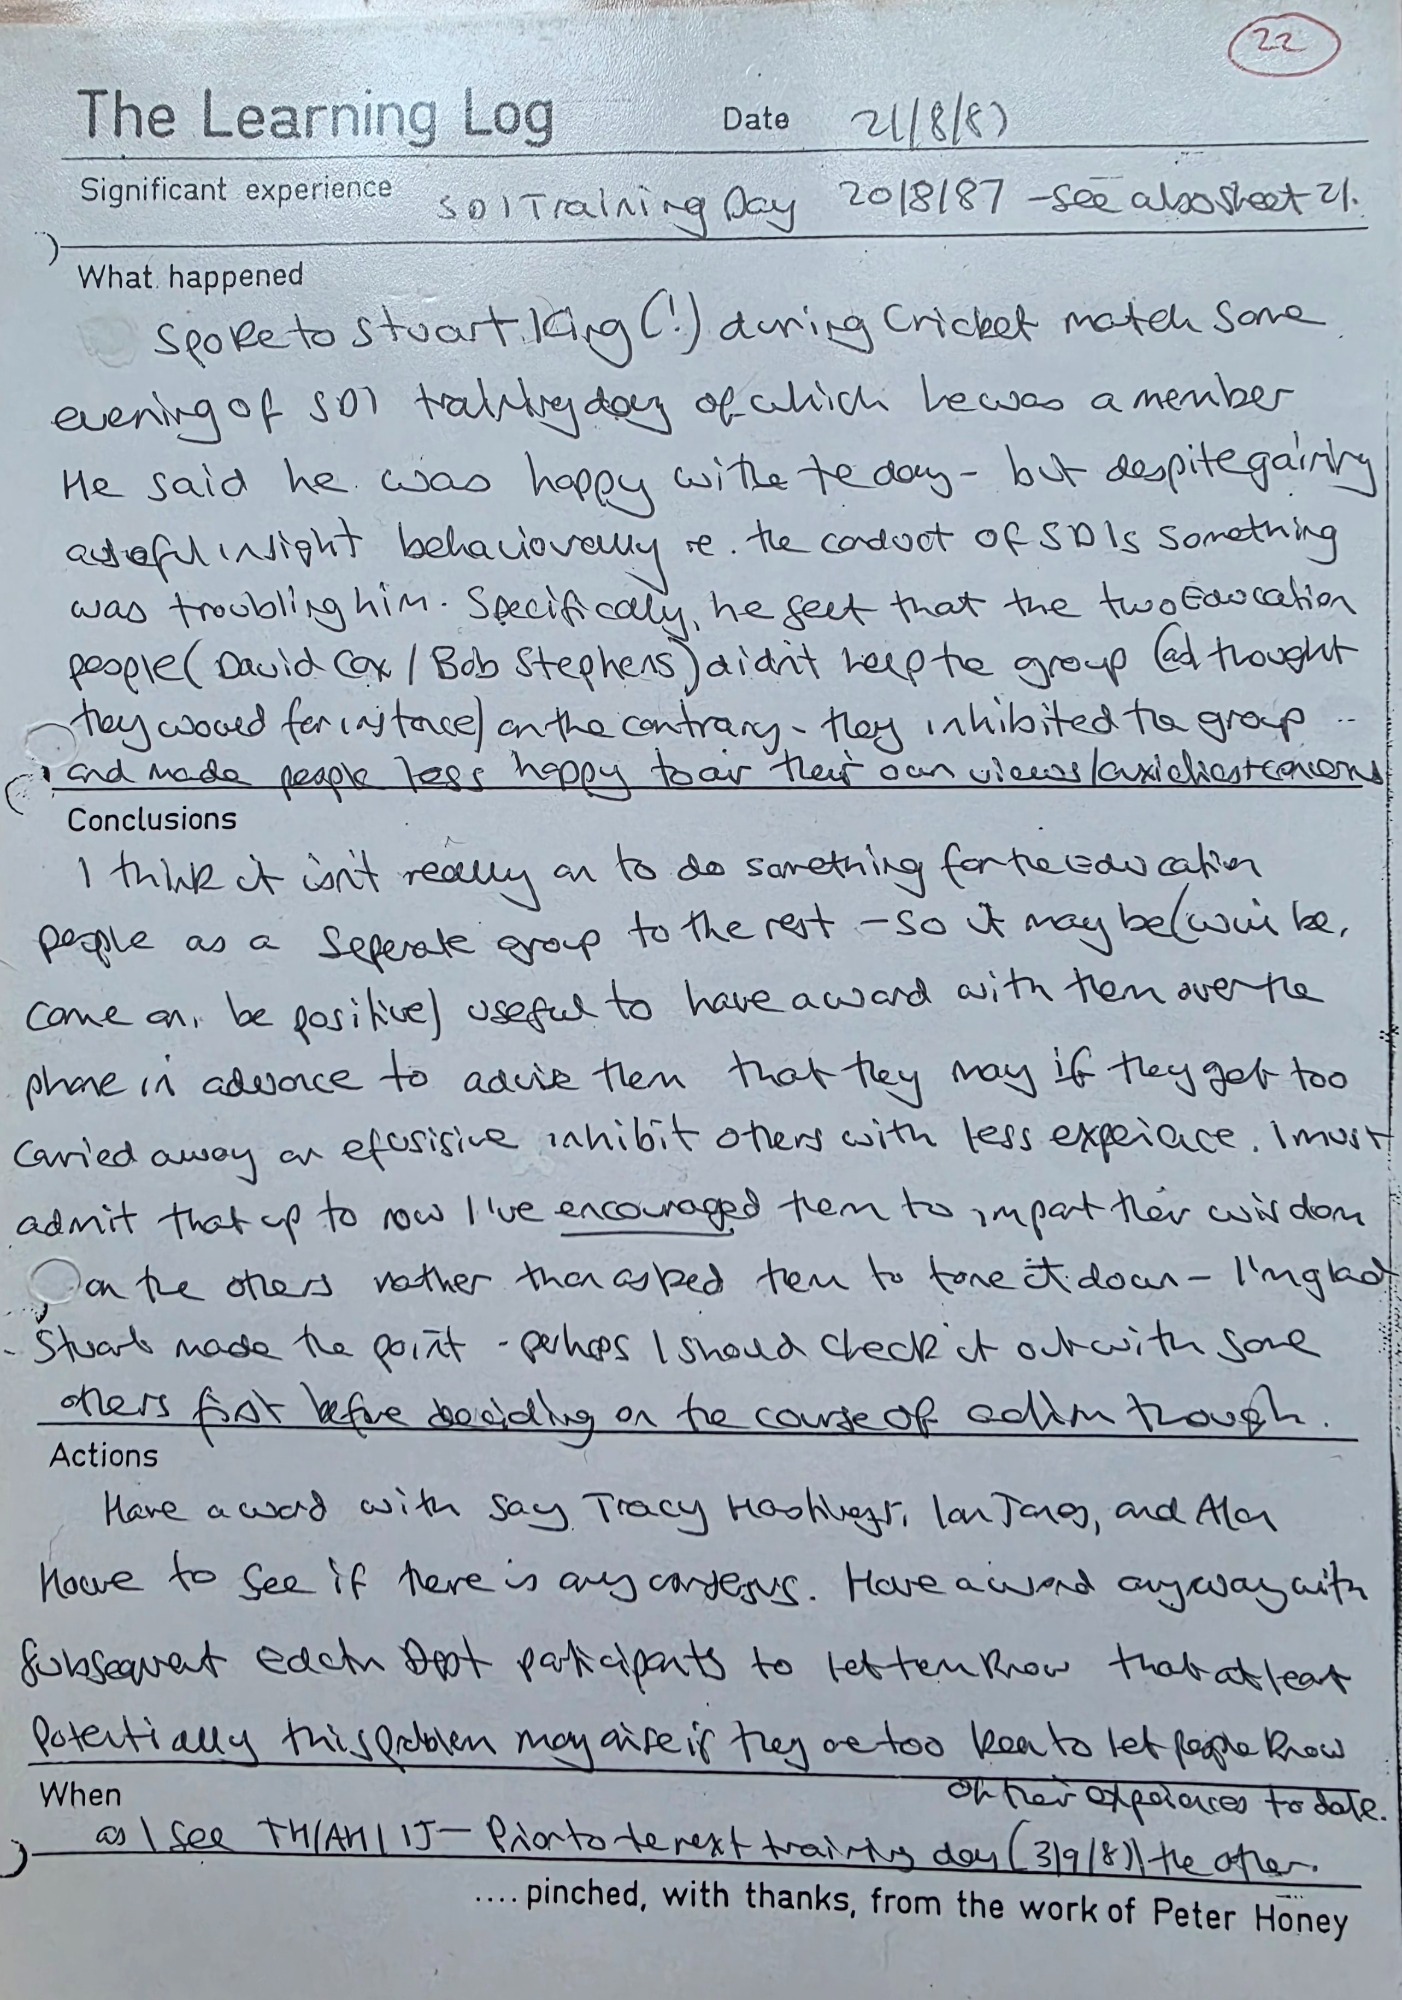 22
The Learning Log Date 21/8/87
Significant experience SDI Training Day 20/8/87 - See also sheet 21.
What happened
Spoke to Stuart King (!) during Cricket match same
evening of SDI training day of which he was a member
He said he was happy with the day - but despite gaining
a useful insight behaviourally re. the conduct of SDIs something
was troubling him. Specifically, he felt that the two Education
people (David Cox / Bob Stephens) didn't help the group (as I thought
they would for instance) on the contrary - they inhibited the group
and made people less happy to air their own views/anxieties + concerns
Conclusions
I think it isn't really on to do something for the Education
people as a seperate group to the rest - so it may be (will be,
come on, be positive) useful to have a word with them over the
phone in advance to advise them that they may if they get too
carried away or efusisive inhibit others with less experience. I must
admit that up to now I've encouraged them to impart their wisdom
on the others rather than asked them to tone it down - I'm glad
Stuart made the point - perhaps I should check it out with some
others first before deciding on the course of action though.
Actions
Have a word with say Tracy Hastings, Ian Jones, and Alan
Howe to see if there is any consensus. Have a word anyway with
subsequent Edctn Dept participants to let them know that at least
potentially this problem may arise if they are too keen to let people know
of their experiences to date.
When
as I see TH/AH/IJ - Prior to the next training day (3/9/87) the other.
.... pinched, with thanks, from the work of Peter Honey